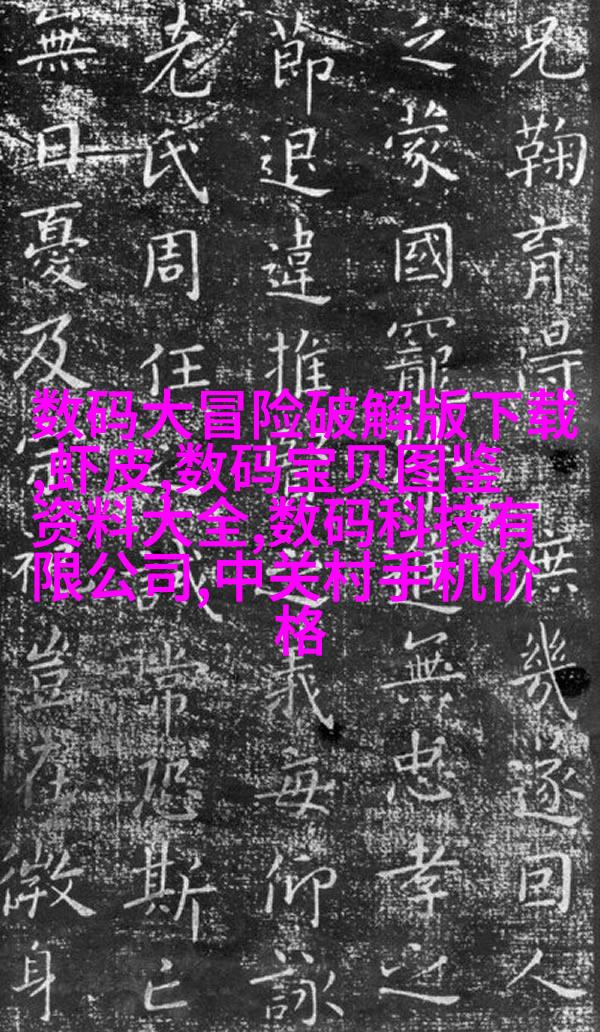 数码大冒险破解版下载
,虾皮,数码宝贝图鉴
资料大全,数码科技有
限公司,中关村手机价
格
兄鞠育得庶幾遂因人
乏蒙國寵進無忠孝之
節退違推之義每仰詠
老氏周任誡常恐斯亡
無日憂及豈在微身